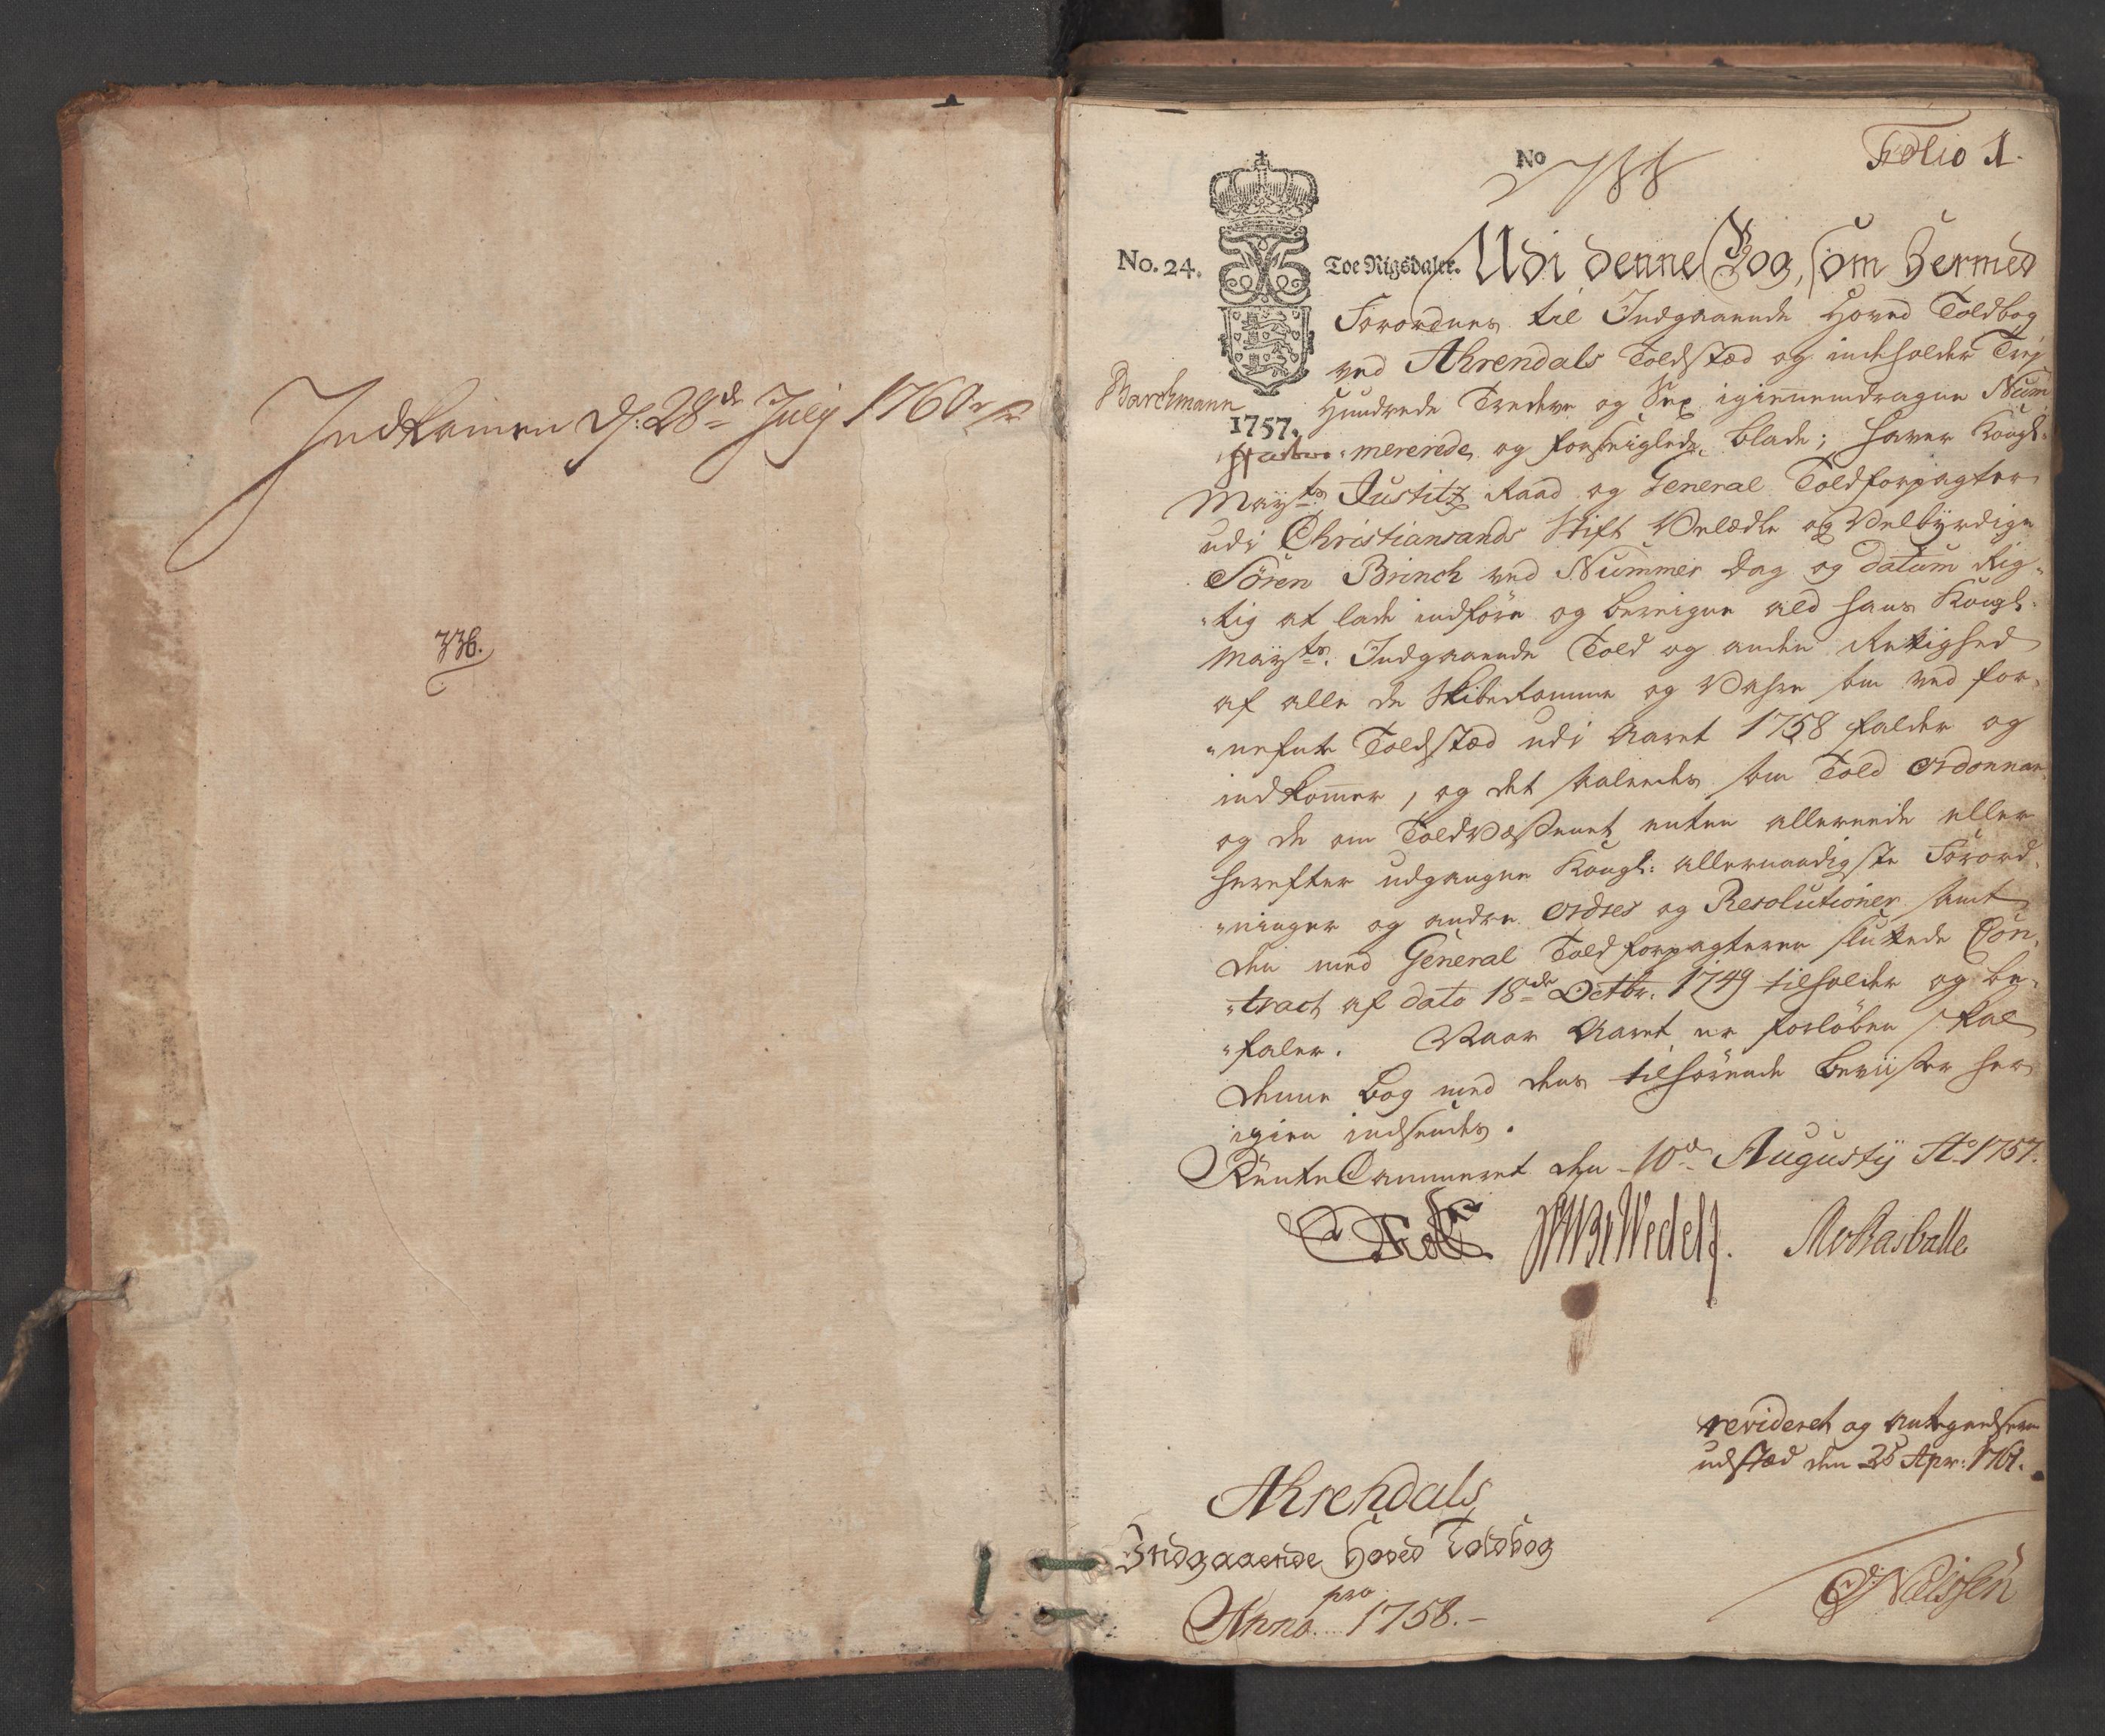 Indkommen d: 28de July 1760
336.
Folio 1.
No 788
No. 24. Toe Rigsdaler. Udi denne Bog, som hermed
Forordnes til Indgaaende Hoved Toldbog
ved Ahrendals Toldstæd og indeholder Trej
Barchmann
1757.
Hundrede Tredeve og Sex igiennemdragne Num„
„mererede og forseiglede blade; haver Kongl:
Mayts Justitz Raad og General Toldforpagter
udi Christiansands Stift Velædle og Velbyrdige
Sören Brinch ved Nummer Dag og datum Rig„
„tig at lade indföre og beregne ald hans Kongl:
Mayts: Indgaaende Told og anden Rettighed
af alle de Skibe komme og Vahre som ved for„
„nefnte Toldstæd udi Aaret 1758 falder og
indkommer, og det saaledes som Told Ordonnan
og de om Toldvæsenet enten allereede eller
herefter udgangne Kongl: allernaadigste Forord„
„ninger og andre Ordres og Resolutioner samt
den med General Toldforpagteren sluttede Con„
„tract af dato 18de Octbr: 1749 tilholder og be„
„faler. Naar Aaret er forlöben skal
denne bog med dens tilhörende beviister her
igien indsendes.
RenteCammeret den 10de Augustij Ao 1757.
Wedels. Rasballe
revideret og Antegnelserne
udstæd den 25 Apr: 1761.
Ahrendals
Indgaaende Hoved Toldbog
pro
Anno 1758.-
Nielssen